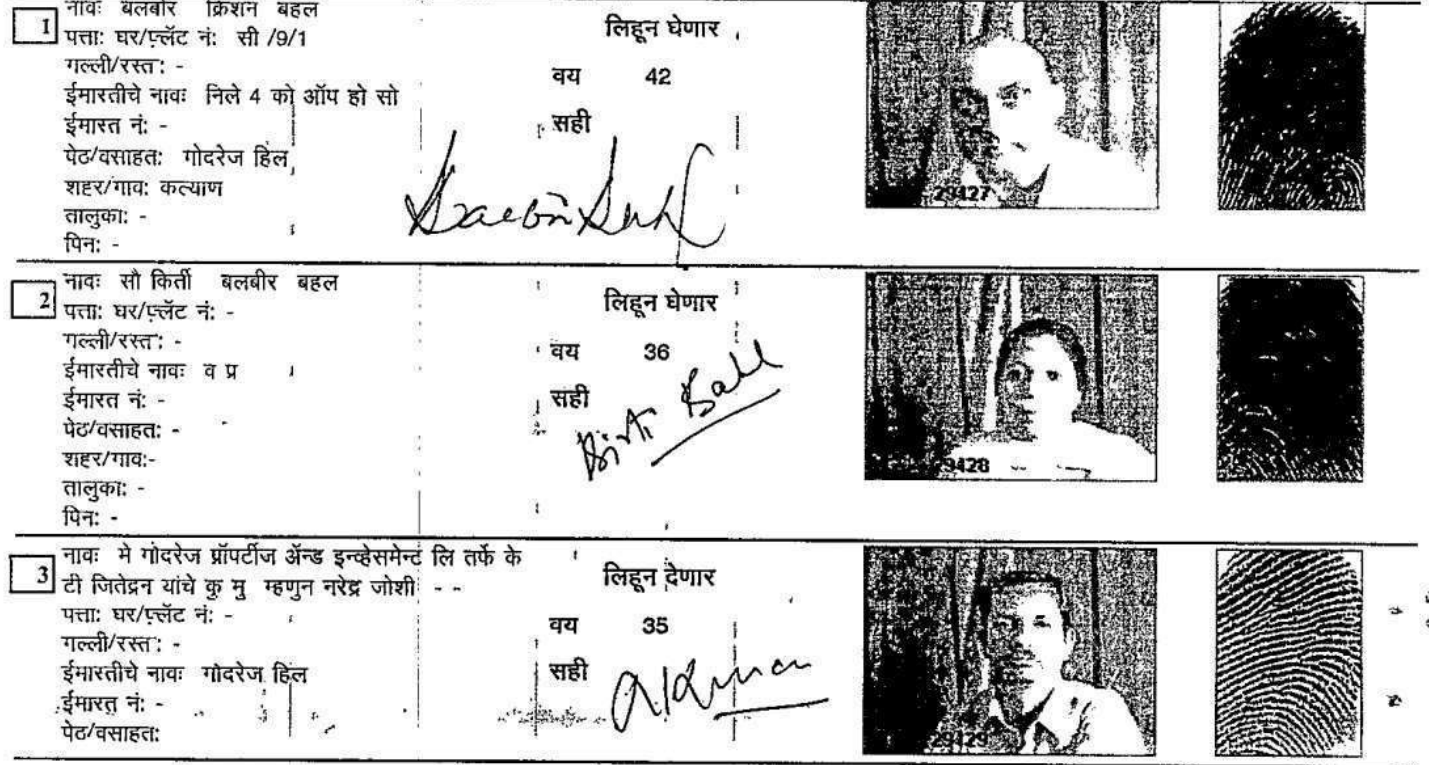 1
नावः बलबीर क्रिशन बहल
पत्ताः घर/फ्लॅट नंः सी /9/1
गल्ली/रस्तः -
ईमारतीचे नावः निले 4 को ऑप हो सो
ईमारत नंः -
पेठ/वसाहतः गोदरेज हिल
शहर/गावः कल्याण
तालुकाः -
पिनः -
लिहून घेणार
वय 42
सही
29427
2
नावः सौ किर्ती बलबीर बहल
पत्ताः घर/फ्लॅट नंः -
गल्ली/रस्तः -
ईमारतीचे नावः व प्र
ईमारत नंः -
पेठ/वसाहतः -
शहर/गावः-
तालुकाः -
पिनः -
लिहून घेणार
वय 36
सही
Kirti Bahl
29428
3
नावः मे गोदरेज प्रॉपर्टीज ॲन्ड इन्व्हेसमेन्ट लि तर्फे के
टी जितेद्रन यांचे कु मु म्हणुन नरेद्र जोशी - -
पत्ताः घर/फ्लॅट नंः -
गल्ली/रस्तः -
ईमारतीचे नावः गोदरेज हिल
ईमारत नंः -
पेठ/वसाहतः
लिहून देणार
वय 35
सही
29429